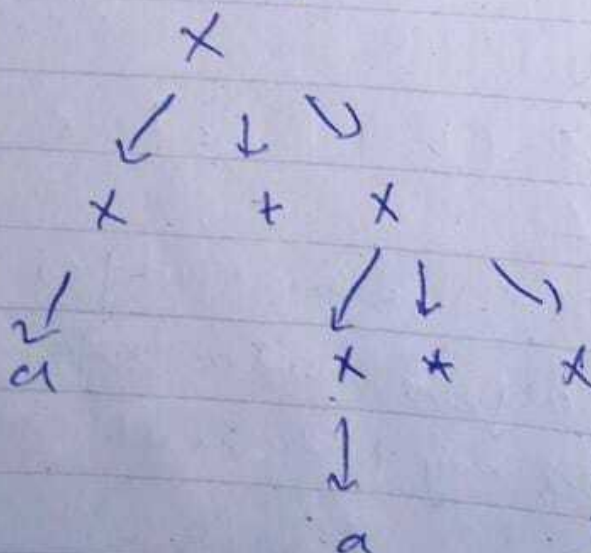 X
X + X
a X * X
a